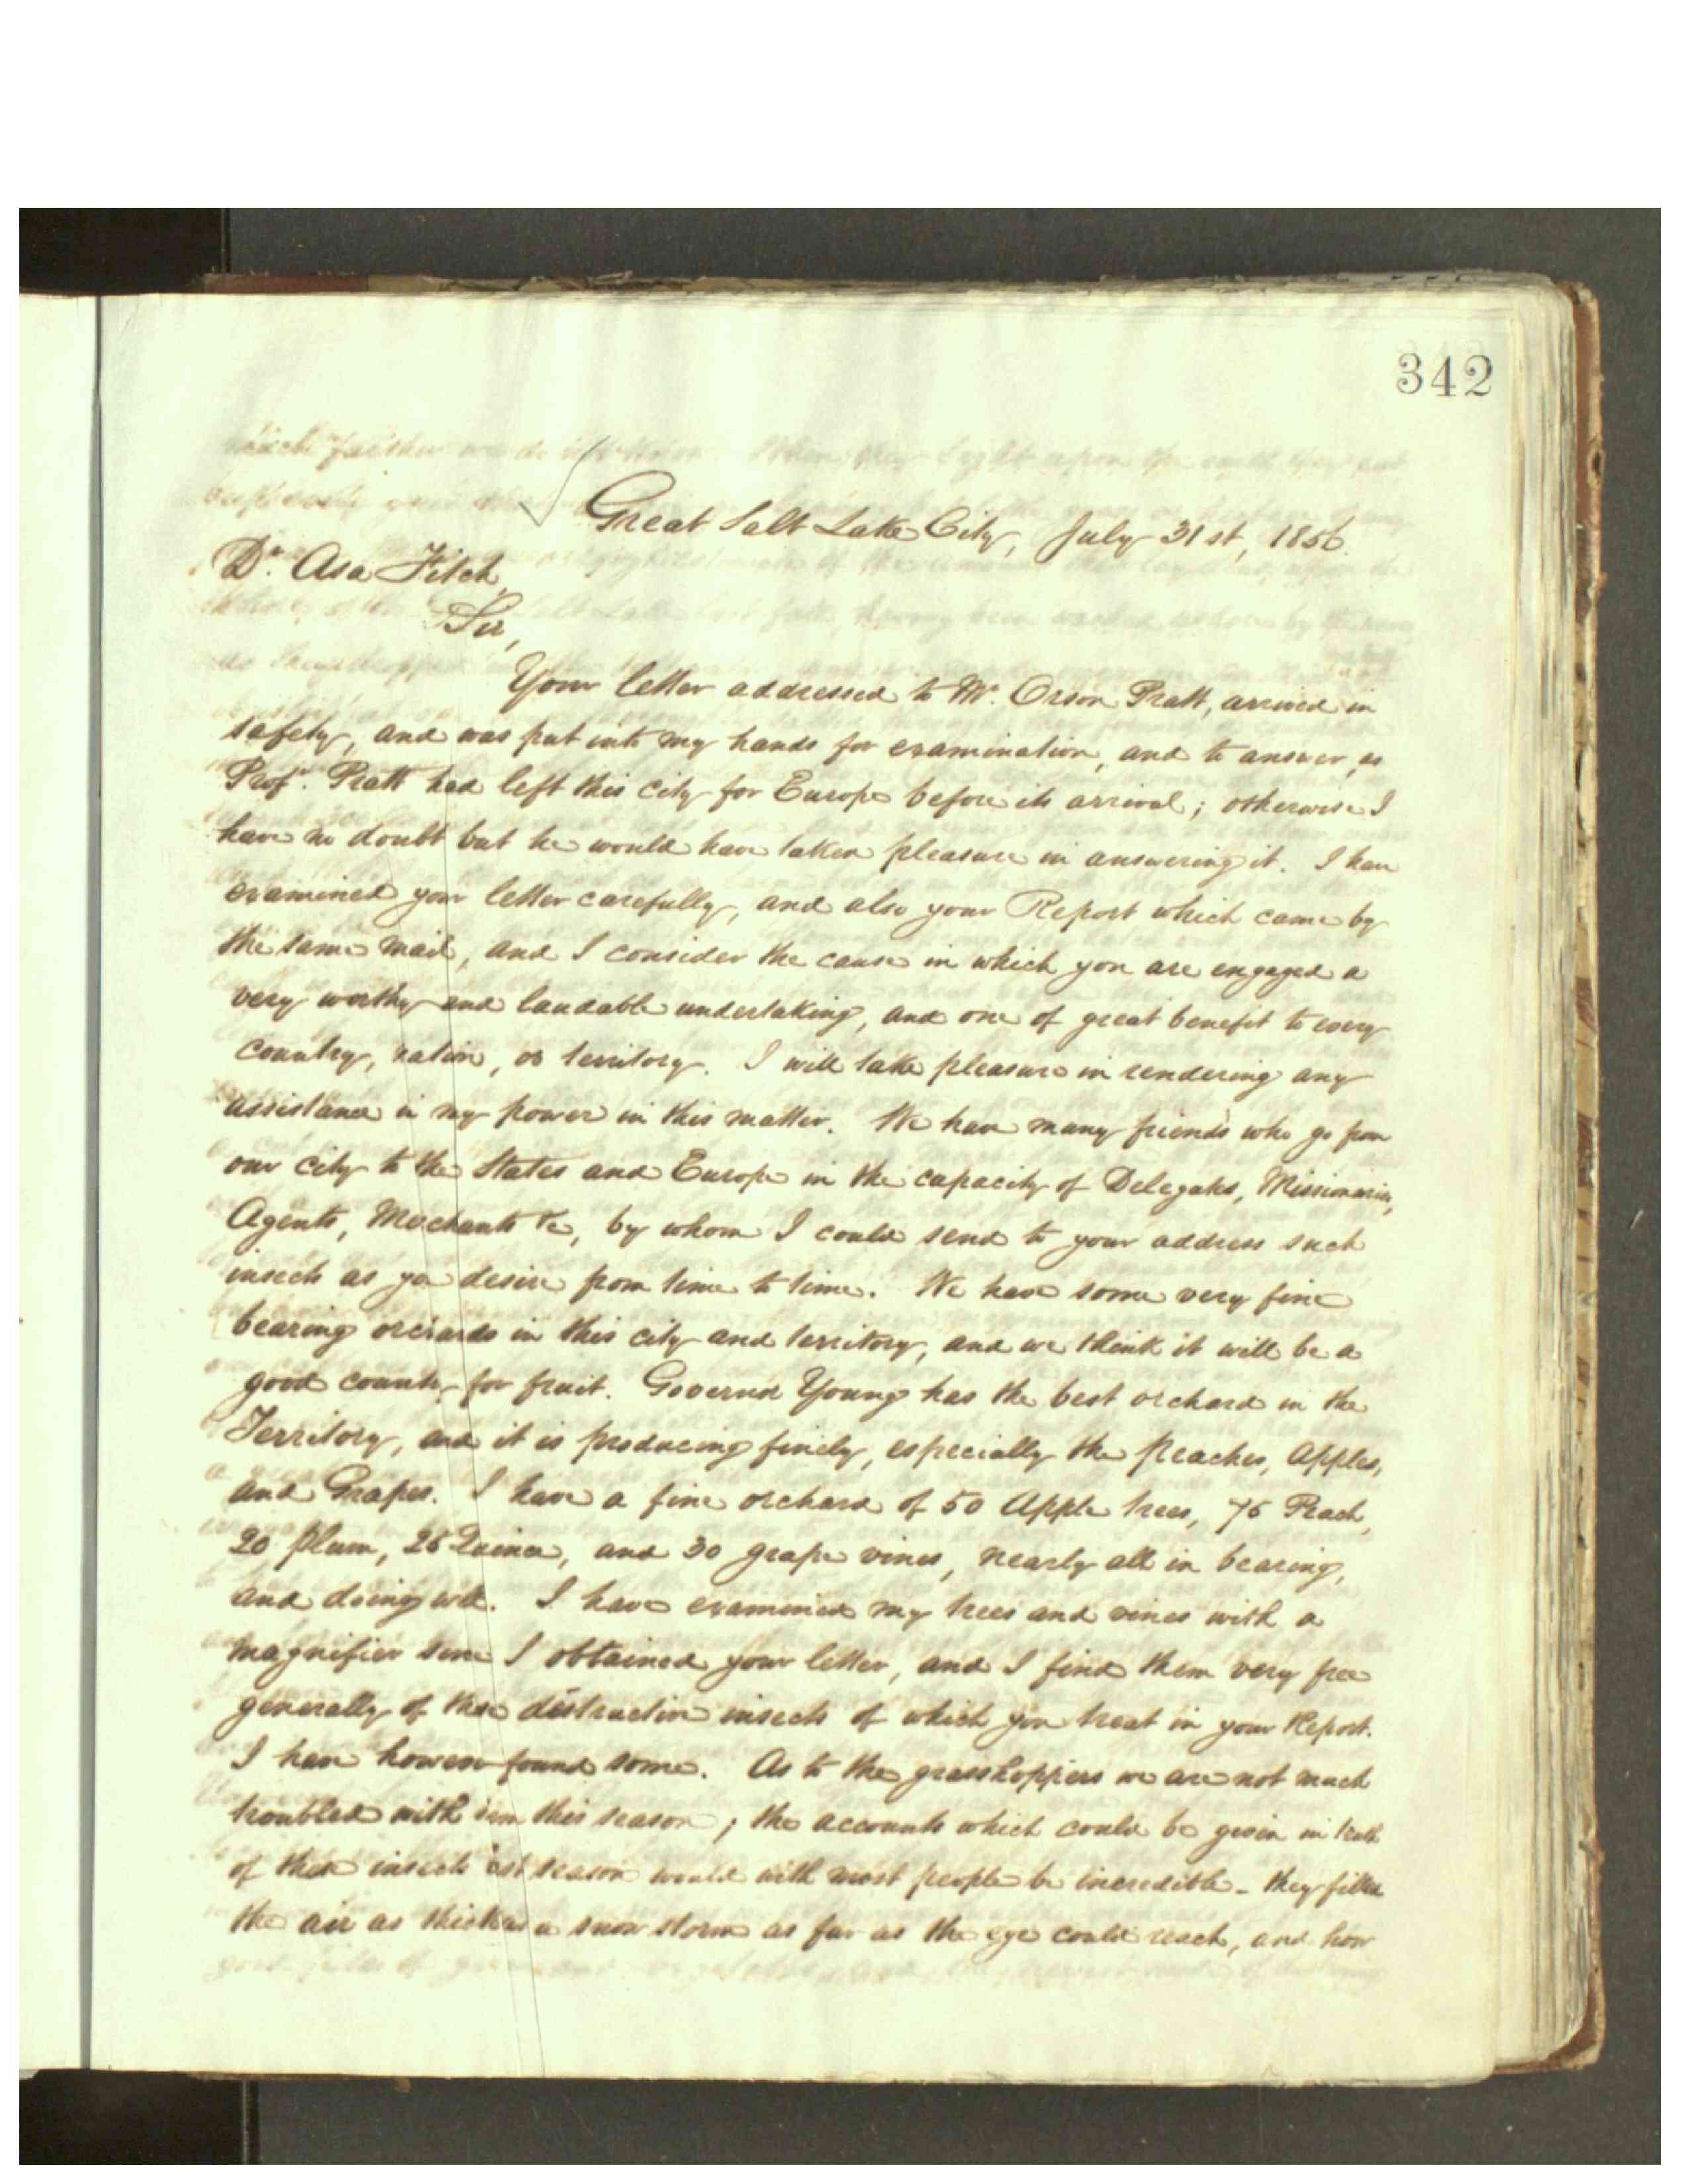 342
Great Salt Lake City, July 31st, 1856.
Dr. Asa Fitch,
Sir,
Your letter addressed to Mr. Orson Pratt, arrived in
safety, and was put into my hands for examination, and to answer, as
Profr. Pratt had left this city for Europe before its arrival; otherwise I
have no doubt but he would have taken pleasure in answering it. I have
examined your letter carefully, and also your Report which came by
the same mail, and I consider the cause in which you are engaged a
very worthy and laudable undertaking, and one of great benefit to every
country, nation, or territory. I will take pleasure in rendering any
assistance in my power in this matter. We have many friends who go from
our city to the States and Europe in the capacity of Delegates, Missionaries,
Agents, Merchants &c, by whom I could send to your address such
insects as you desire from time to time. We have some very fine
bearing orchards in this city and territory, and we think it will be a
good country for fruit. Governor Young has the best orchard in the
Territory, and it is producing finely, especially the peaches, Apples,
and Grapes. I have a fine orchard of 50 Apple trees, 75 Peach,
20 plum, 25 Quince, and 30 grape vines, nearly all in bearing,
and doing well. I have examined my trees and vines with a
magnifier since I obtained your letter, and I find them very free
generally of those distructive insects of which you treat in your Report.
I have however found some. As to the grasshoppers we are not much
troubled with them this season; the accounts which could be given in truth
of these insects last season would with most people be incredible - they filled
the air as thick as a snow storm as far as the eye could reach, and how